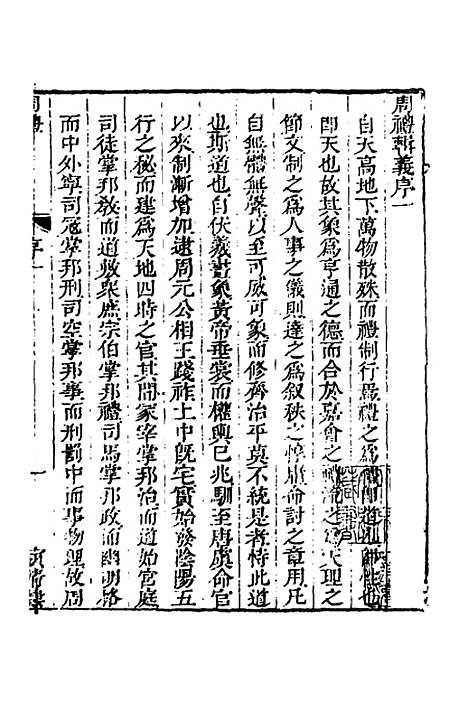 周禮輯義序一
自天高地下萬物散殊而禮制行焉禮之為即道也即性也
即天也故其象為亨通之德而合於嘉會之禮流之為天理之
節文制之為人事之儀則達之為叙秩之惇庸命討之章用凡
自無體無聲以至可威可象而修齊治平莫不統是者恃此道
也斯道也自伏羲畫象黃帝垂裳而權輿已兆馴至唐虞命官
以來制漸增加逮周元公相王踐祚土中既宅實始發陰陽五
行之秘而建為天地四時之官其間冢宰掌邦治而道始宮庭
司徒掌邦敎而道敷衆庶宗伯掌邦禮司馬掌邦政而幽明格
而中外寧司宼掌邦刑司空掌邦事而刑罰中而事物理故周
周禮
序一